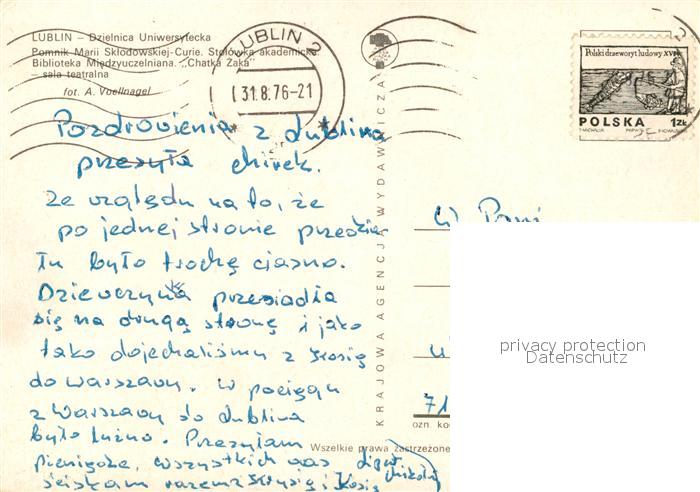 LUBLIN — Dzielnica Uniwersytecka
Pomnik Marii Skłodowskiej-Curie. Stołówka akademicka.
Biblioteka Międzyuczelniana. „Chatka Żaka"
— sala teatralna
fot. A. Voellnagel
LUBLIN 2
31.8.76-21
Polski drzeworyt ludowy XVI
POLSKA 1 ZŁ
Pozdrowienia z Lublina
przesyła
Ze względu na to, że
po jednej stronie przedzia
łu było trochę ciasno.
Dziewczyna przesiadła
się na drugą stronę i jako
tako dojechaliśmy z Kosią
do Warszawy. W pociągu
z Warszawy do Lublina
było luźno. Przesyłam
pieniądze, wszystkich was
ściskam razem z Krysią i Kosią
KRAJOWA AGENCJA WYDAWNICZA
W. Pani
71
ozn. ko
Wszelkie prawa zastrzeżone
privacy protection
Datenschutz